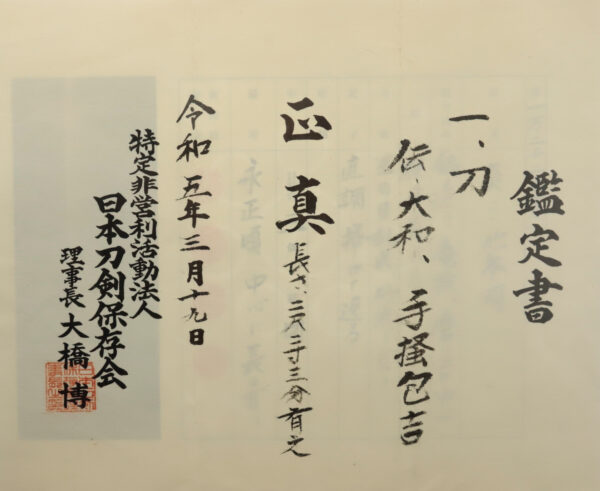 鑑定書
一、刀
伝、大和、手掻包吉
正真
長さ、二尺三寸三分有之
令和五年三月十九日
特定非営利活動法人
日本刀剣保存会
理事長 大橋 博